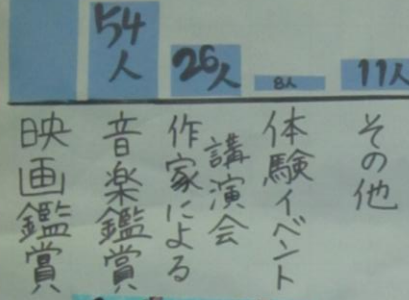 54人
26人
8人
11人
映画鑑賞
音楽鑑賞
作家による
講演会
体験イベント
その他